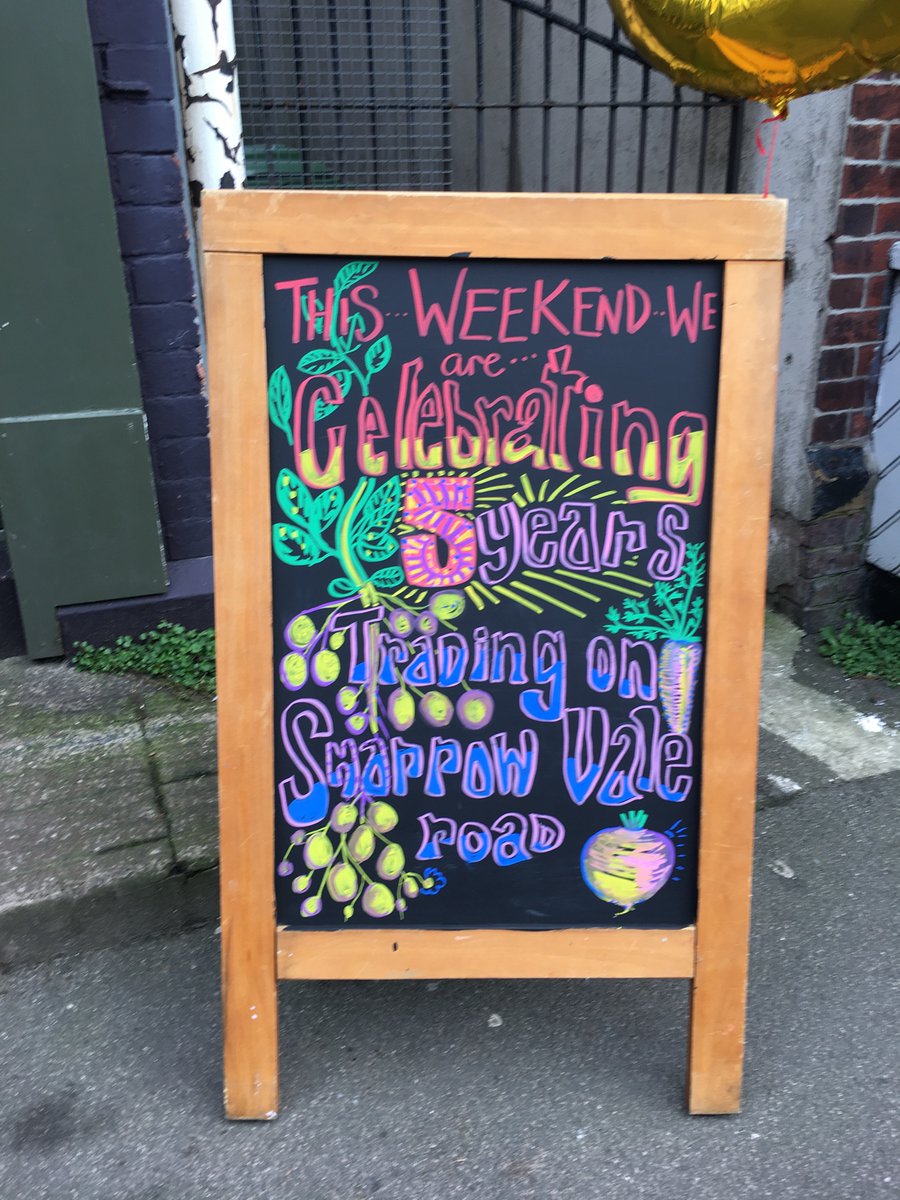 THIS... WEEKEND.. WE
are...
Celebrating
5 years
Trading on
Sharrow Vale
road